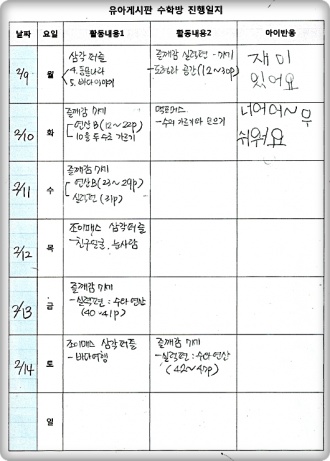 유아게시판 수학방 진행일지
날짜 요일 활동내용1 활동내용2 아이반응
2/9 월
삼각퍼즐
4.
5. 바다이야기
즐깨감
(12~30p)
재미
있어요
2/10 화
즐깨감
연산B(12~22p)
10을 두수로 가르기
-수의 가르기와 모으기
너어어~무
쉬워요
2/11 수
즐깨감
연산B(23~29p)
(31p)
2/12 목
조이매스 삼각퍼즐
-친구얼굴, 눈사람
2/13 금
즐깨감
-실력편: 수와연산
(40~41p)
2/14 토
조이매스 삼각퍼즐
-바다여행
즐깨감
-실력편: 수와연산
(42~47p)
일